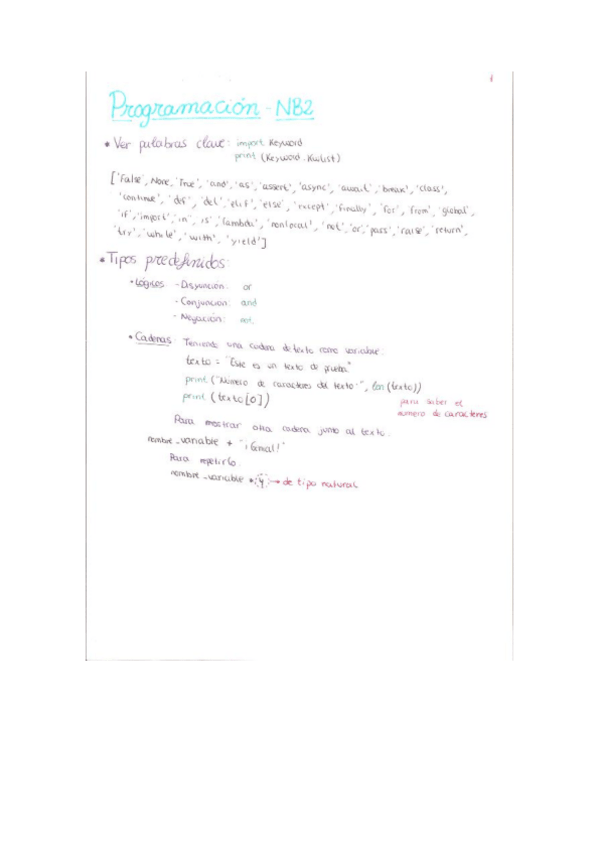 Programación - NB2
• Ver palabras clave: import Keyword
print (Keyword.Kwlist)
['False', None, 'True', 'and', 'as', 'assert', 'async', 'await', 'break', 'class',
'continue', 'def', 'del', 'elif', 'else', 'except', 'finally', 'for', 'from', 'global',
'if', 'import', 'in', 'is', 'lambda', 'nonlocal', 'not', 'or', 'pass', 'raise', 'return',
'try', 'while', 'with', 'yield']
• Tipos predefinidos:
• Lógicos - Disyunción: or
- Conjunción: and
- Negación: not
• Cadenas Teniendo una cadena de texto como variable:
texto = "Este es un texto de prueba"
print ("Número de caracteres del texto:", len(texto))
print (texto[0])
para saber el
número de caracteres
Para mostrar otra cadena junto al texto:
nombre_variable + "¡Genial!"
Para repetirlo
nombre_variable * 4 → de tipo natural